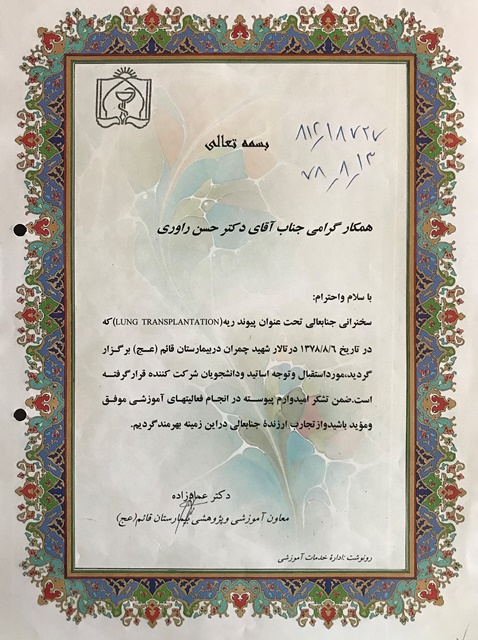 بسمه تعالی
۸۱۴/۱۸۷۲۷
۷۸/۸/۱۳
همکار گرامی جناب آقای دکتر حسن راوری
با سلام واحترام:
سخنرانی جنابعالی تحت عنوان پیوند ریه(LUNG TRANSPLANTATION)که
در تاریخ ۱۳۷۸/۸/۶ درتالار شهید چمران دربیمارستان قائم (عج) برگزار
گردید،مورداستقبال وتوجه اساتید ودانشجویان شرکت کننده قرارگرفته
است.ضمن تشکر امیدوارم پیوسته در انجام فعالیتهای آموزشی موفق
ومؤید باشیدوازتجارب ارزندهٔ جنابعالی دراین زمینه بهرمندگردیم.
دکتر عمادزاده
معاون آموزشی وپژوهشی بیمارستان قائم(عج)
رونوشت :ادارهٔ خدمات آموزشی